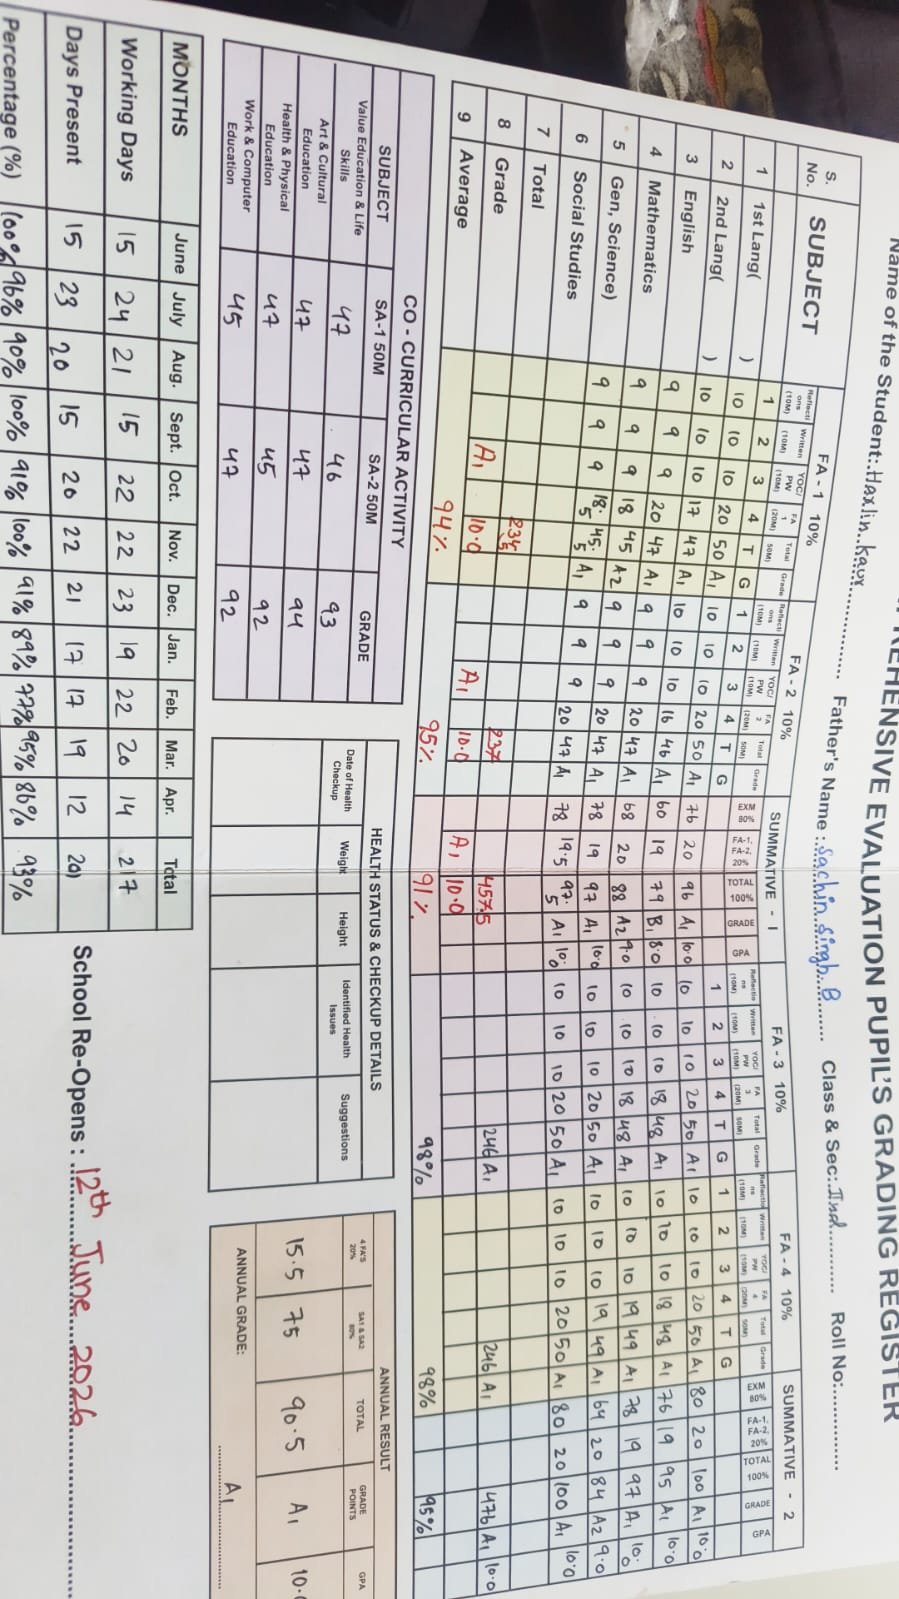 REHENSIVE EVALUATION PUPIL'S GRADING REGISTER
Name of the Student: Haxlin kaur Father's Name : Sachin Singh. B Class & Sec: IInd Roll No:
S. No. SUBJECT FA - 1 10% FA - 2 10% SUMMATIVE - 1 FA - 3 10% FA - 4 10% SUMMATIVE - 2
Reflections (10M) Written (10M) YOC/PW (10M) FA 1 (20M) Total 50M) Grade Reflections (10M) Written (10M) YOC/PW (10M) FA 2 (20M) Total 50M) Grade EXM 80% FA-1, FA-2, 20% TOTAL 100% GRADE GPA Reflections (10M) Written (10M) YOC/PW (10M) FA 3 (20M) Total 50M) Grade Reflections (10M) Written (10M) YOC/PW (10M) FA 4 (20M) Total 50M) Grade EXM 80% FA-1, FA-2, 20% TOTAL 100% GRADE GPA
1 2 3 4 T G 1 2 3 4 T G 1 2 3 4 T G 1 2 3 4 T G
1 1st Lang( ) 10 10 10 20 50 A1 10 10 10 20 50 A1 76 20 96 A1 10.0 10 10 10 20 50 A1 10 10 10 20 50 A1 80 20 100 A1 10.0
2 2nd Lang( ) 10 10 10 17 47 A1 10 10 10 16 46 A1 60 19 79 B1 8.0 10 10 10 18 48 A1 10 10 10 18 48 A1 76 19 95 A1 10.0
3 English 9 9 9 20 47 A1 9 9 9 20 47 A1 68 20 88 A2 9.0 10 10 10 18 48 A1 10 10 10 19 49 A1 78 19 97 A1 10.0
4 Mathematics 9 9 9 18 45 A2 9 9 9 20 47 A1 78 19 97 A1 10.0 10 10 10 20 50 A1 10 10 10 19 49 A1 64 20 84 A2 9.0
5 Gen, Science) 9 9 9 18.5 45.5 A1 9 9 9 20 47 A1 78 19.5 97.5 A1 10.0 10 10 10 20 50 A1 10 10 10 20 50 A1 80 20 100 A1 10.0
6 Social Studies
7 Total 234.5 237 457.5 246 A1 246 A1 476 A1 10.0
8 Grade A1 10.0 A1 10.0 A1 10.0
9 Average 94% 95% 91% 98% 98% 95%
CO - CURRICULAR ACTIVITY
SUBJECT SA-1 50M SA-2 50M GRADE
Value Education & Life Skills 47 46 93
Art & Cultural Education 47 47 94
Health & Physical Education 47 45 92
Work & Computer Education 45 47 92
HEALTH STATUS & CHECKUP DETAILS
Date of Health Checkup Weight Height Identified Health Issues Suggestions
ANNUAL RESULT
4 FA'S 20% SA1 & SA2 80% TOTAL GRADE POINTS GPA
15.5 75 90.5 A1 10.
ANNUAL GRADE: A1
MONTHS June July Aug. Sept. Oct. Nov. Dec. Jan. Feb. Mar. Apr. Total
Working Days 15 24 21 15 22 22 23 19 22 20 14 217
Days Present 15 23 20 15 20 22 21 17 17 19 12 201
Percentage (%) 100% 96% 90% 100% 91% 100% 91% 89% 77% 95% 86% 93%
School Re-Opens : 12th June 2026